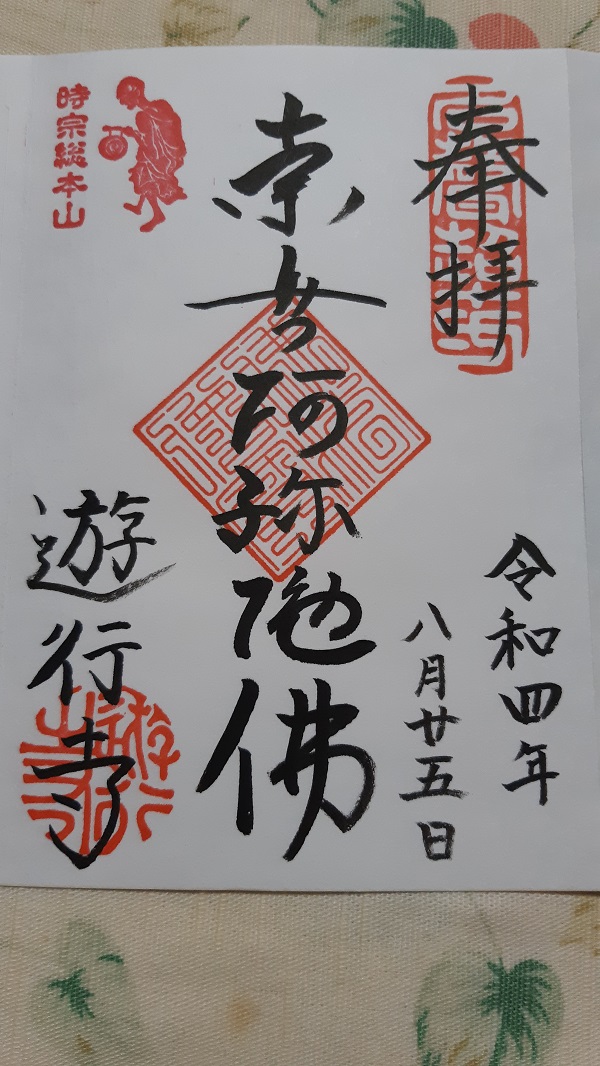 奉拝
令和四年
八月廿五日
南無阿弥陀佛
時宗総本山
遊行寺